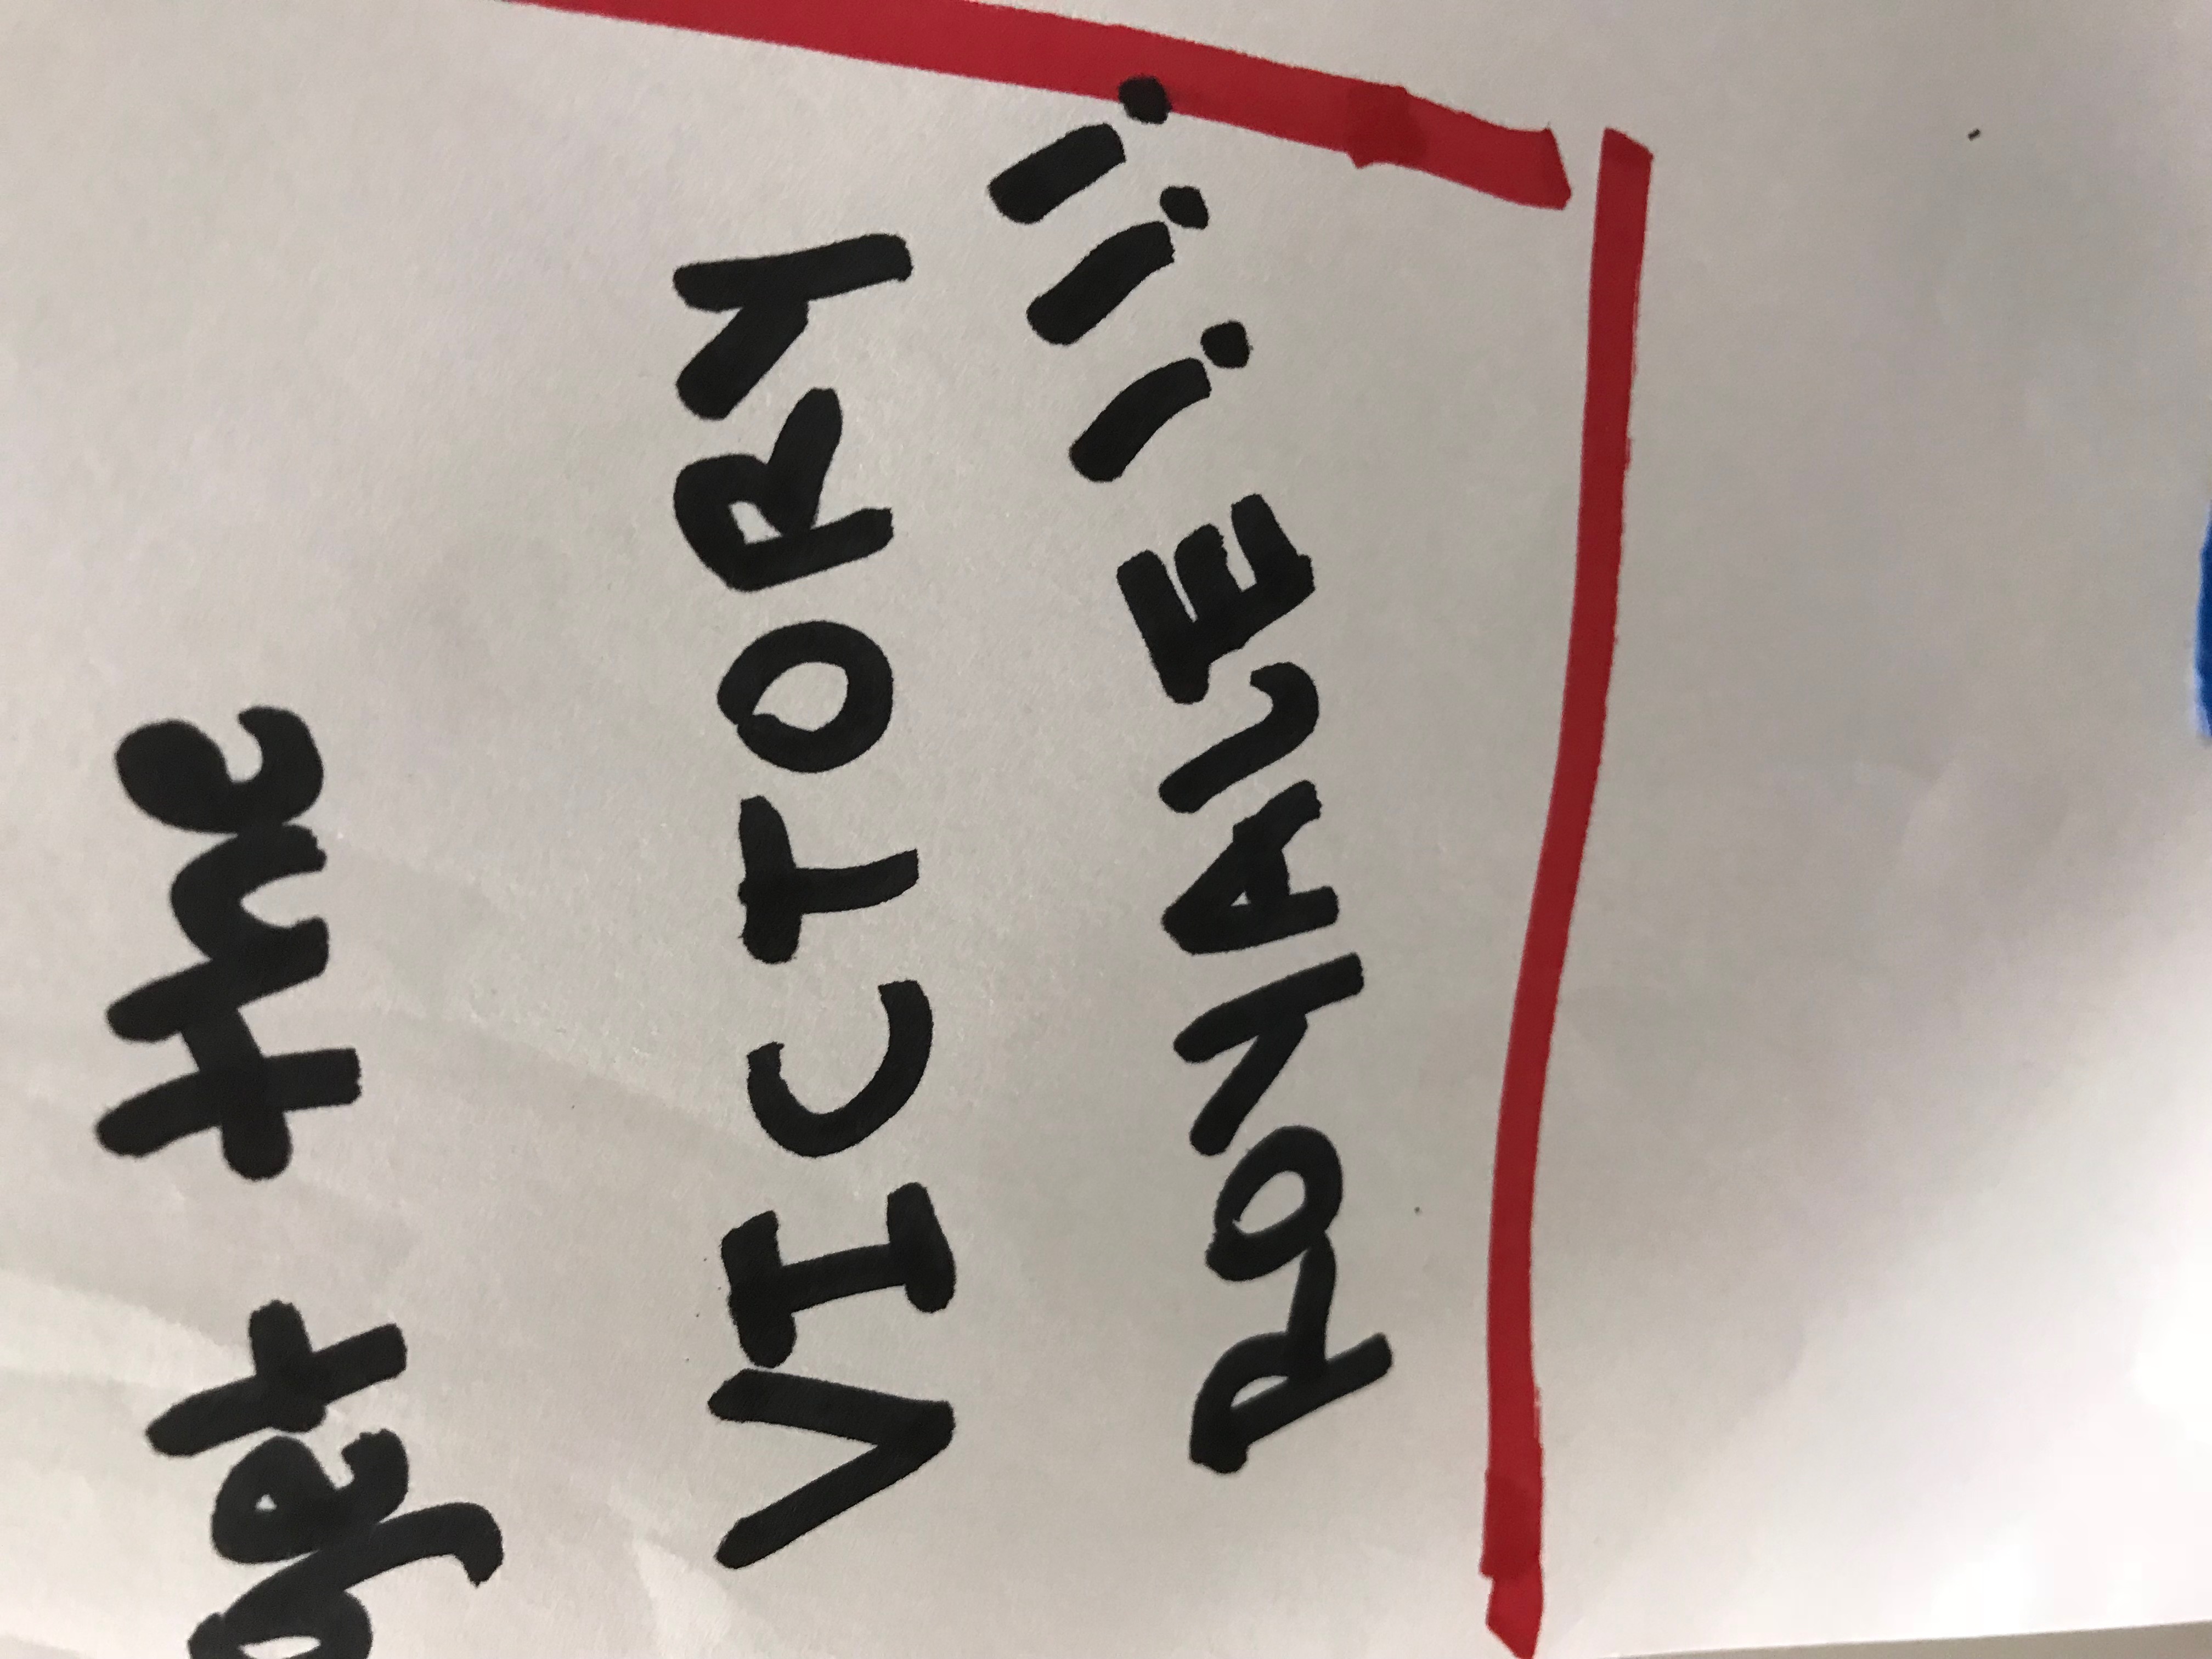 get the
VICTORY
ROYALE!!!